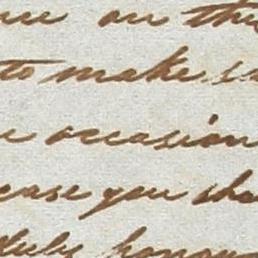 on the
to make
occasion
ease you sha
duly honou